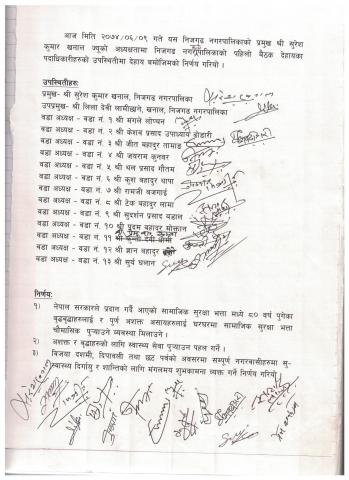 आज मिति २०७४/०६/०९ गते यस निजगढ नगरपालिकाको प्रमुख श्री सुरेश
कुमार खनाल ज्यूको अध्यक्षतामा निजगढ नगरपालिकाको पहिलो बैठक देहायका
पदाधिकारीहरुको उपस्थितीमा देहाय बमोजिमको निर्णय गरियो ।
उपस्थितीहरुः
प्रमुख- श्री सुरेश कुमार खनाल, निजगढ नगरपालिका
उपप्रमुख- श्री लिला देवी लामीछाने, खनाल, निजगढ नगरपालिका
वडा अध्यक्ष - वडा नं. १ श्री मंगले लोप्चन
वडा अध्यक्ष - वडा नं. २ श्री केशव प्रसाद उपाध्याय
वडा अध्यक्ष - वडा नं. ३ श्री जीत बहादुर तामाङ
वडा अध्यक्ष - वडा नं. ४ श्री जयराम कुनवर
वडा अध्यक्ष - वडा नं. ५ श्री थल प्रसाद गौतम
वडा अध्यक्ष - वडा नं. ६ श्री कृश बहादुर थापा
वडा अध्यक्ष - वडा नं. ७ श्री रामजी बजगाई
वडा अध्यक्ष - वडा नं. ८ श्री टेक बहादुर लामा
वडा अध्यक्ष - वडा नं. ९ श्री सुदर्शन प्रसाद
वडा अध्यक्ष - वडा नं. १० श्री पदम बहादुर मोक्तान
वडा अध्यक्ष - वडा नं. ११ श्री
वडा अध्यक्ष - वडा नं. १२ श्री ज्ञान बहादुर
वडा अध्यक्ष - वडा नं. १३ श्री सुर्य घलान
निर्णयः
१) नेपाल सरकारले प्रदान गर्दै आएको सामाजिक सुरक्षा भत्ता मध्ये ८० वर्ष पुगेका
बृद्धबृद्धाहरुलाई र पुर्ण अशक्त असायहरुलाई घरघरमा सामाजिक सुरक्षा भत्ता
चौमासिक पुऱ्याउने व्यवस्था मिलाउने ।
२) अशक्त र बृद्धाहरुको लागि स्वास्थ्य सेवा पुऱ्याउन पहल गर्ने ।
३) विजया दशमी, दिपावली तथा छट पर्वको अवसरमा सम्पुर्ण नगरबासीहरुमा सु-
स्वास्थ्य दिर्गायु र शान्तिको लागि मंगलमय शुभकामना व्यक्त गर्ने निर्णय गरियो ।